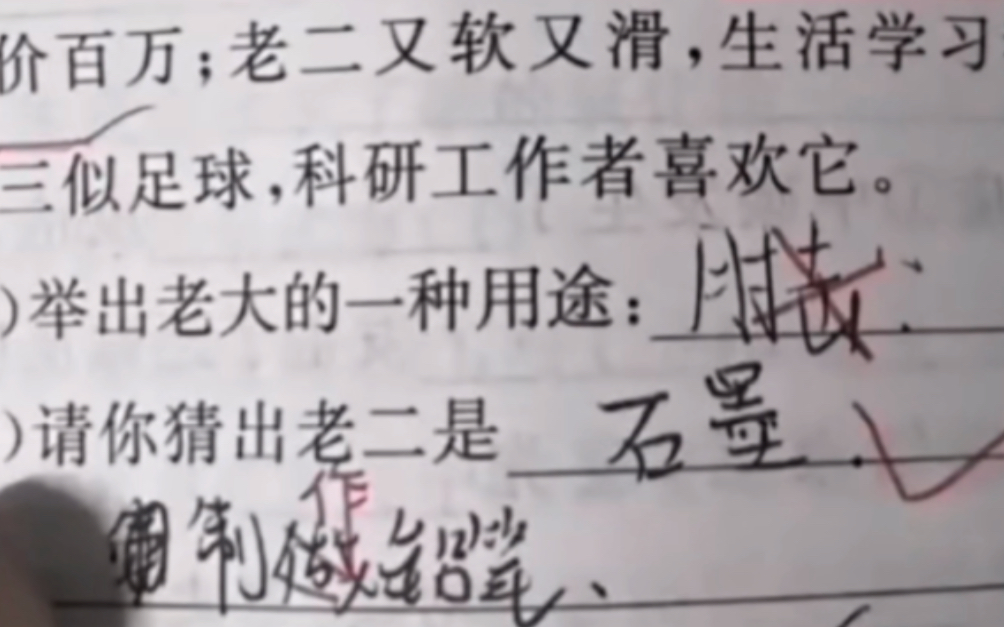 价百万;老二又软又滑,生活学习
三似足球,科研工作者喜欢它。
)举出老大的一种用途:
)请你猜出老二是 石墨.
制做作铅笔、